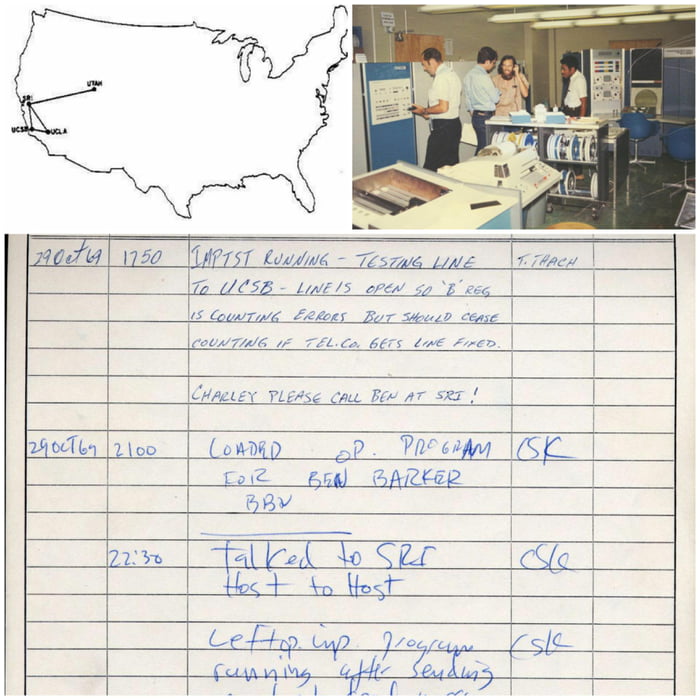 UTAH
SRI
UCSB
UCLA
29Oct69 1750 IMPTST RUNNING - TESTING LINE T. THACH
TO UCSB - LINE IS OPEN SO 'B' REG
IS COUNTING ERRORS BUT SHOULD CEASE
COUNTING IF TEL.CO. GETS LINE FIXED.
CHARLEY PLEASE CALL BEN AT SRI!
29OCT69 2100 LOADED OP. PROGRAM CSK
FOR BEN BARKER
BBN
22:30 Talked to SRI CSK
Host to Host
Left op. imp. program CSK
running after sending